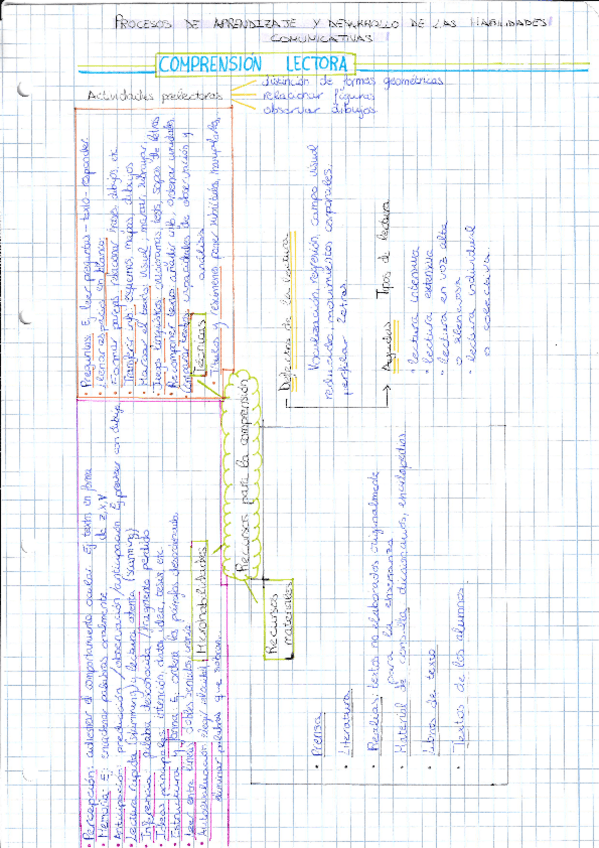 PROCESOS DE APRENDIZAJE Y DESARROLLO DE LAS HABILIDADES
COMUNICATIVAS
COMPRENSIÓN LECTORA
Actividades prelectoras
distinción de formas geométricas
relacionar figuras
observar dibujos
Recursos para la comprensión
Técnicas
• Preguntas: Ej leer preguntas - texto - responder
• Rellenar espacios en blanco
• Formar parejas relacionar frases dibujos, etc
• Transferir info esquemas, mapas, dibujos
• Marcar el texto visual, marcar, subrayar,
• Juegos lingüísticos crucigramas, tests, sopas de letras
• Recomponer textos añadir info, ordenar
• Comparar textos capacidades de observación y
análisis
• Títulos y resúmenes poner
Microhabilidades
• Percepción: adiestrar el comportamiento ocular. Ej texto en forma
de z, x, y
• Memoria Ej emparejar palabras oralmente
• Anticipación: predicción / observación / anticipación Ej prever con dibujo
• Lectura rápida (skimming) y lectura atenta (scanning)
• Inferencia palabra desconocida / fragmento perdido
• Ideas principales intención, dato, idea, tesis, etc
• Estructura y forma: Ej ordenar los párrafos desordenados
• Leer entre líneas dobles sentidos, ironía
• Autoevaluación
eliminar palabras que sobran.
Recursos
materiales
• Prensa
• Literatura
• Realias, textos no elaborados originalmente
para la enseñanza
• Material de consulta diccionarios, enciclopedias
• Libros de texto
• Textos de los alumnos.
Defectos de la lectura
Vocalización, regresión, campo visual
reducido, movimientos corporales,
perfilar letras
Agudas Tipos de lectura
• lectura intensiva
• lectura extensiva
• lectura en voz alta
o silenciosa
• lectura individual
o colectiva.